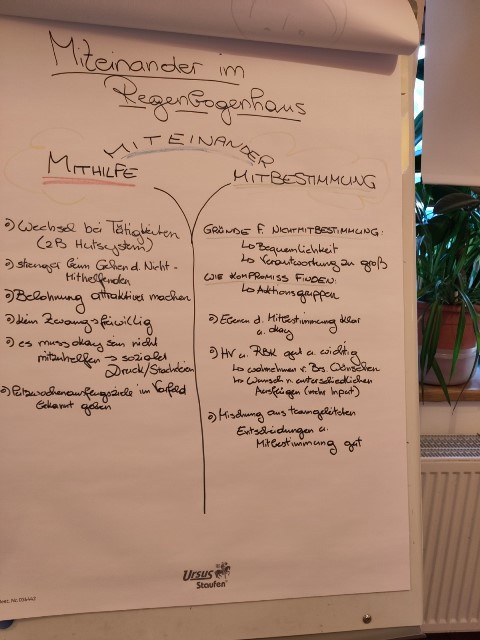 Miteinander im
Regenbogenhaus
MITEINANDER
MITHILFE
MITBESTIMMUNG
Wechsel bei Tätigkeiten
(zB Hutsystem)
strenger beim Gehen d. Nicht-
Mithelfenden
Belohnung attraktiver machen
kein Zwang → freiwillig
es muss okay sein nicht
mitzuhelfen → sozialer
Druck/
im Vorfeld
bekannt geben
GRÜNDE F. NICHTMITBESTIMMUNG:
↳ Bequemlichkeit
↳ Verantwortung zu groß
WIE KOMPROMISS FINDEN:
↳ Aktionsgruppen
Ebenen d. Mitbestimmung klar
u. okay
HV u. RBK gut u. wichtig
↳ wahrnehmen v. Bes Wünschen
↳ Wunsch n. unterschiedlichen
(mehr Input)
Mischung aus teamgeleiteten
Entscheidungen u.
Mitbestimmung gut
Ursus
Staufen